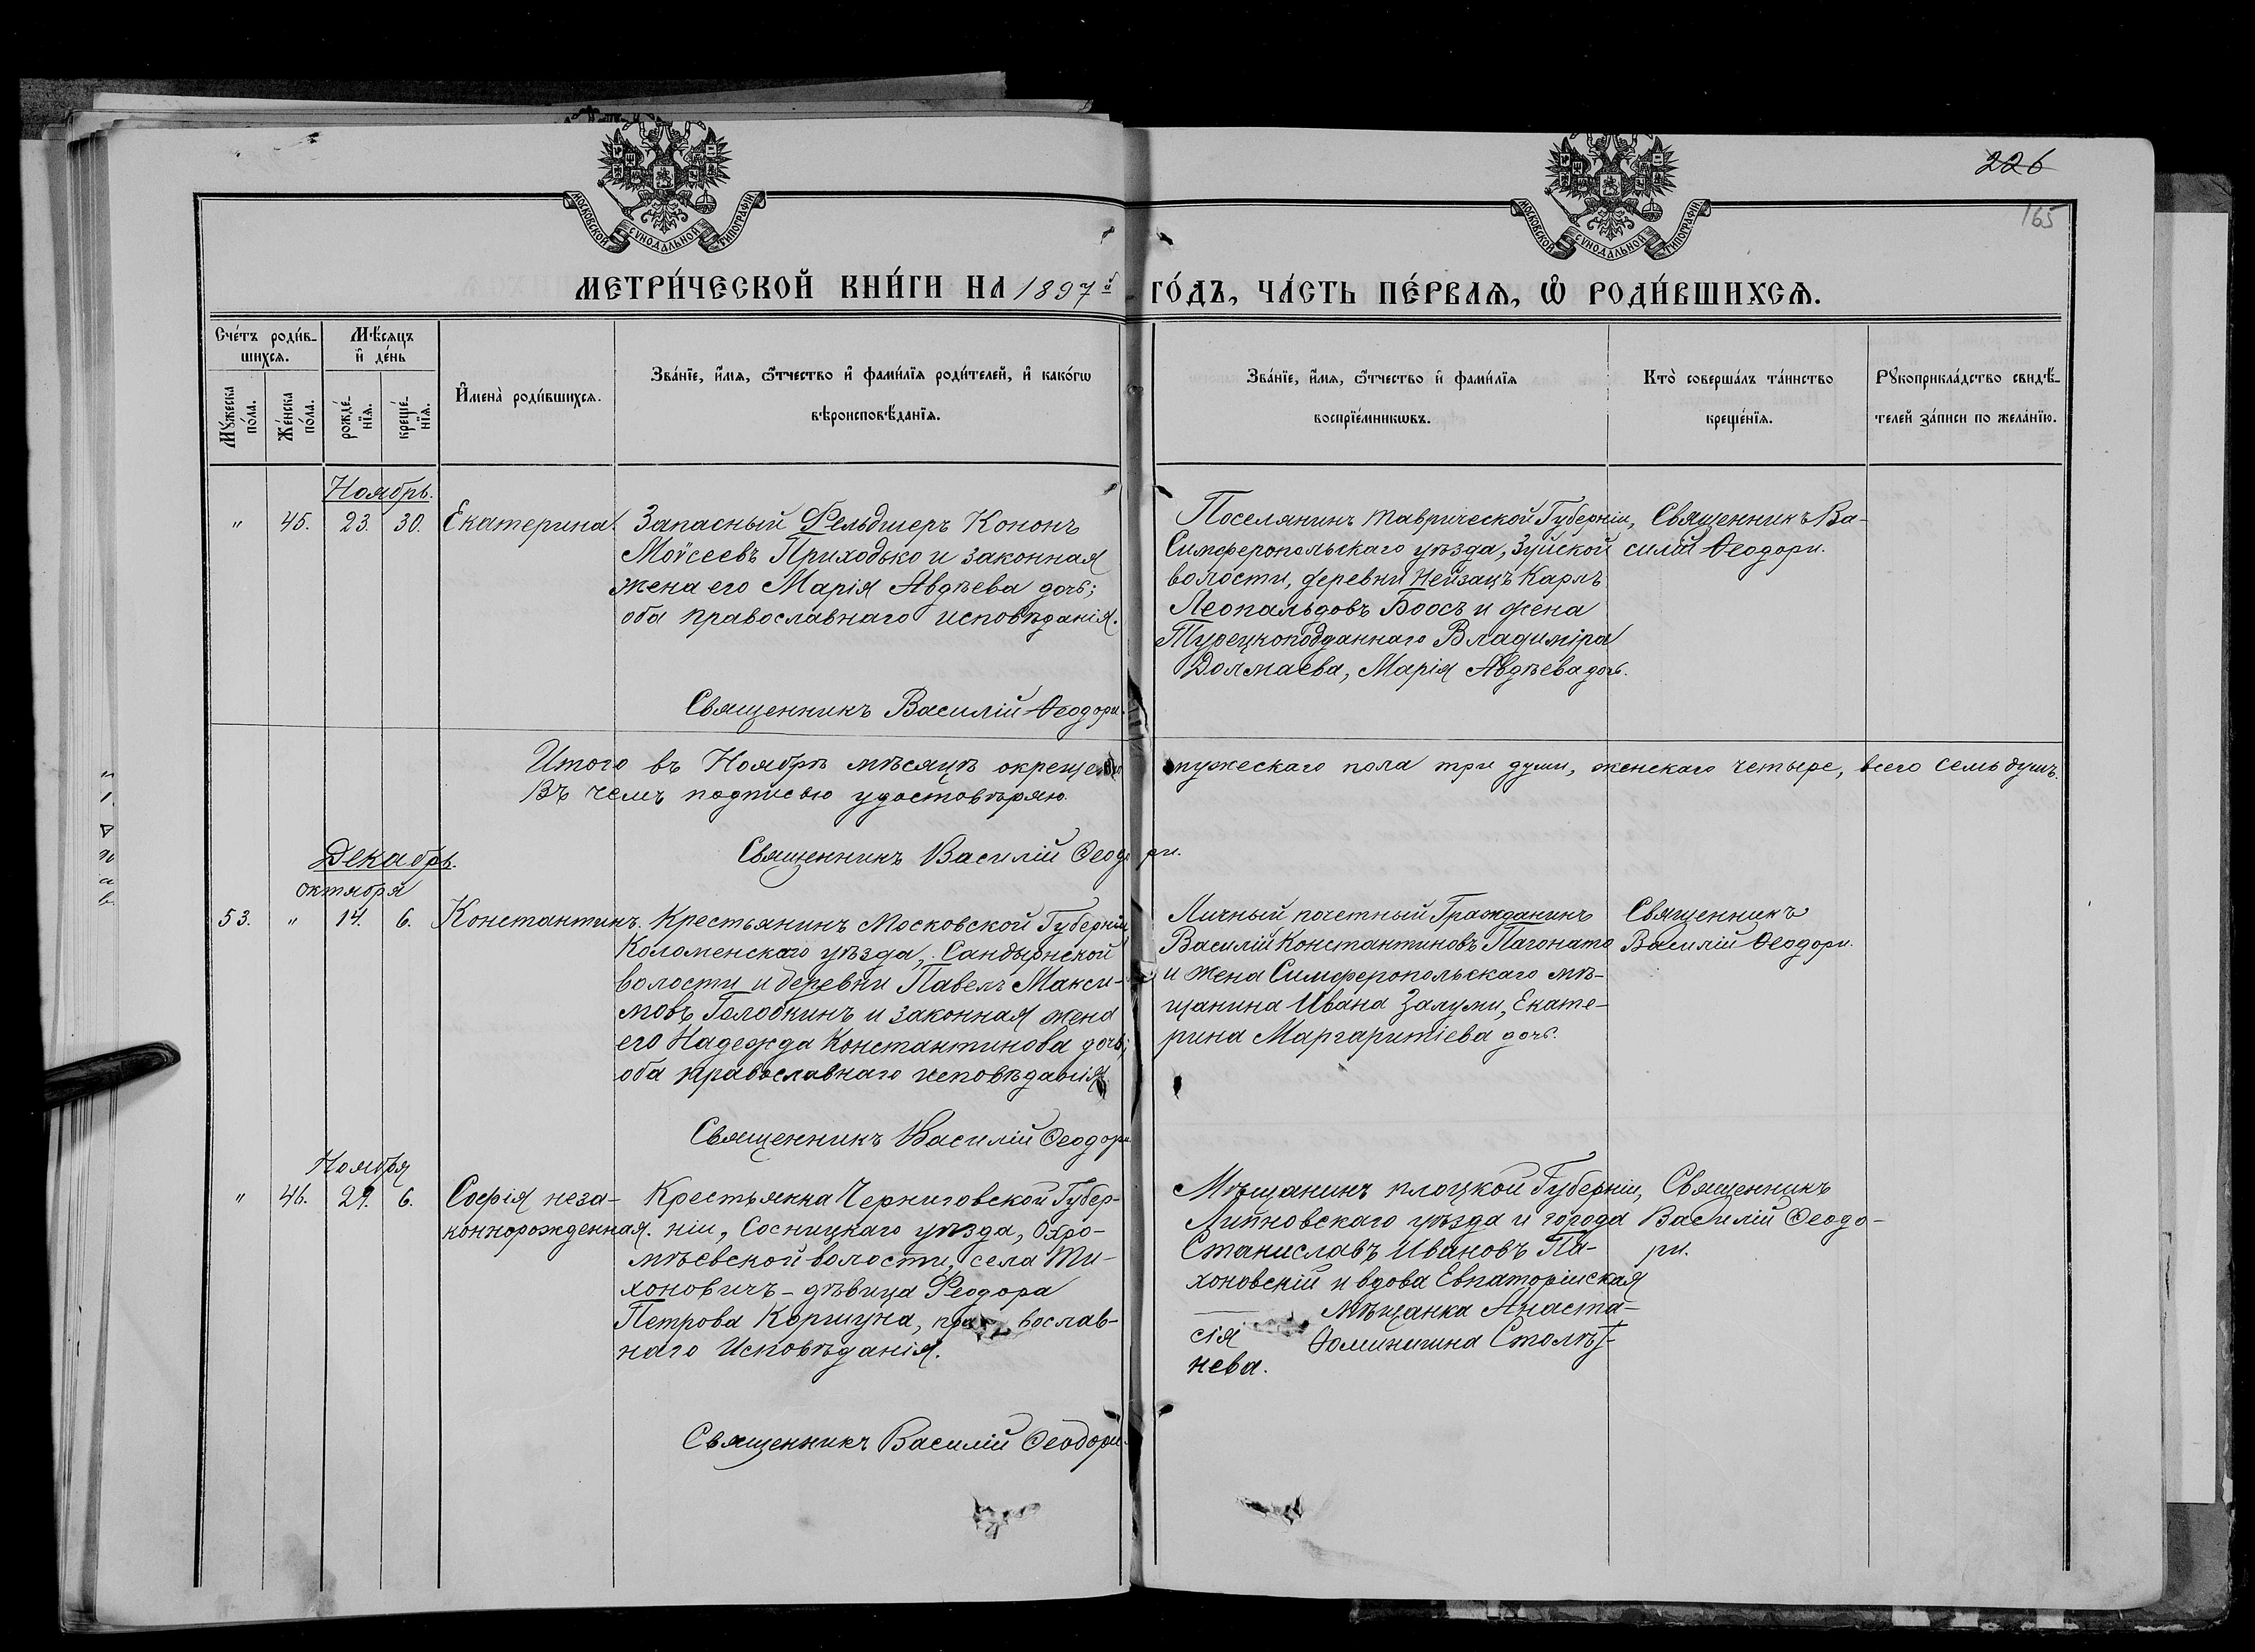 226
165
МОСКОВСКОЙ СѴНОДАЛЬНОЙ ТИПОГРАФІИ
МОСКОВСКОЙ СѴНОДАЛЬНОЙ ТИПОГРАФІИ
МЕТРИ́ЧЕСКОЙ КНИ́ГИ НА 1897й ГО́ДЪ, ЧА́СТЬ ПЕ́РВАѦ, Ѡ҆ РОДИ́ВШИХСѦ.
Сче́тъ роди́в-
шихсѧ.
Мѣ́сѧцъ
и҆ де́нь
Мꙋ́жеска
по́ла.
Же́нска
по́ла.
рожде́-
нїѧ.
креще́-
нїѧ.
И҆мена̀ роди́вшихсѧ.
Зва́нїе, и҆́мѧ, ѻ҆́тчество и҆ фами́лїѧ роди́телей, и҆ како́гѡ
вѣроисповѣ́данїѧ.
Зва́нїе, и҆́мѧ, ѻ҆́тчество и҆ фами́лїѧ
воспрїе́мникѡвъ.
Кто̀ соверша́лъ та́инство
креще́нїѧ.
Рꙋкоприкла́дство свидѣ́-
телей за́писи по жела́нїю.
Ноябрь.
" 45. 23. 30. Екатерина.
Запасный Фельдшеръ Кононъ
Моѵсеевъ Приходько и законная
жена его Марія Авдѣева дочь;
оба православнаго исповѣданія.
Поселянинъ Таврической Губерніи,
Симферопольскаго уѣзда, Зуйской
волости, деревни Нейзацъ Карлъ
Леопальдовъ Боосъ и жена
Турецкоподданнаго Владиміра
Долмаева, Марія Авдѣева дочь.
Священникъ Ва-
силій Ѳеодори.
Священникъ Василій Ѳеодори.
Итого въ Ноябрѣ мѣсяцѣ окрещено мужескаго пола три души, женскаго четыре, всего семь душъ.
Въ чемъ подписью удостовѣряю.
Священникъ Василій Ѳеодори.
Декабрь.
Октября
53. " 14. 6. Константинъ.
Крестьянинъ Московской Губерніи
Коломенскаго уѣзда, Сандырнской
волости и деревни Павелъ Макси-
мовъ Голодкинъ и законная жена
его Надежда Константинова дочь;
оба православнаго исповѣданія
Личный почетный Гражданинъ
Василій Константиновъ Пагонато
и жена Симферопольскаго мѣ-
щанина Ивана Залуми, Екате-
рина Маргаритіева дочь.
Священникъ
Василій Ѳеодори.
Священникъ Василій Ѳеодори
Ноября
" 46. 29. 6. Софія неза-
коннорожденная.
Крестьянка Черниговской Губер-
ніи, Сосницкаго уѣзда, Охро-
мѣевской волости, села Ти-
хоновичъ - дѣвица Ѳеодора
Петрова Коршуна, православ-
наго Исповѣданія.
Мѣщанинъ плоцкой Губерніи,
Липновскаго уѣзда и города
Станиславъ Ивановъ Па-
хоновскій и вдова Евпаторійская
Мѣщанка Анаста-
сія Ѳоминична Столѣт-
нева.
Священникъ
Василій Ѳеодо-
ри.
Священникъ Василій Ѳеодори.